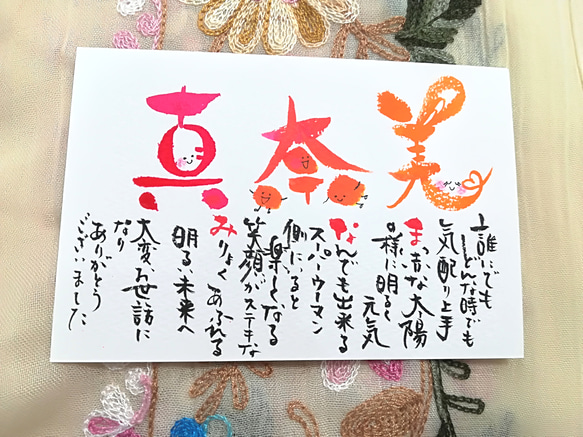 真奈美
誰にでも
どんな時でも
気配り上手
まっ赤な太陽
の様に明るく
元気
なんでも出来る
スーパーウーマン
側にいると
楽しくなる
笑顔がステキな
みりょくあふれる
明るい未来へ
大変お世話に
なり
ありがとう
ございました